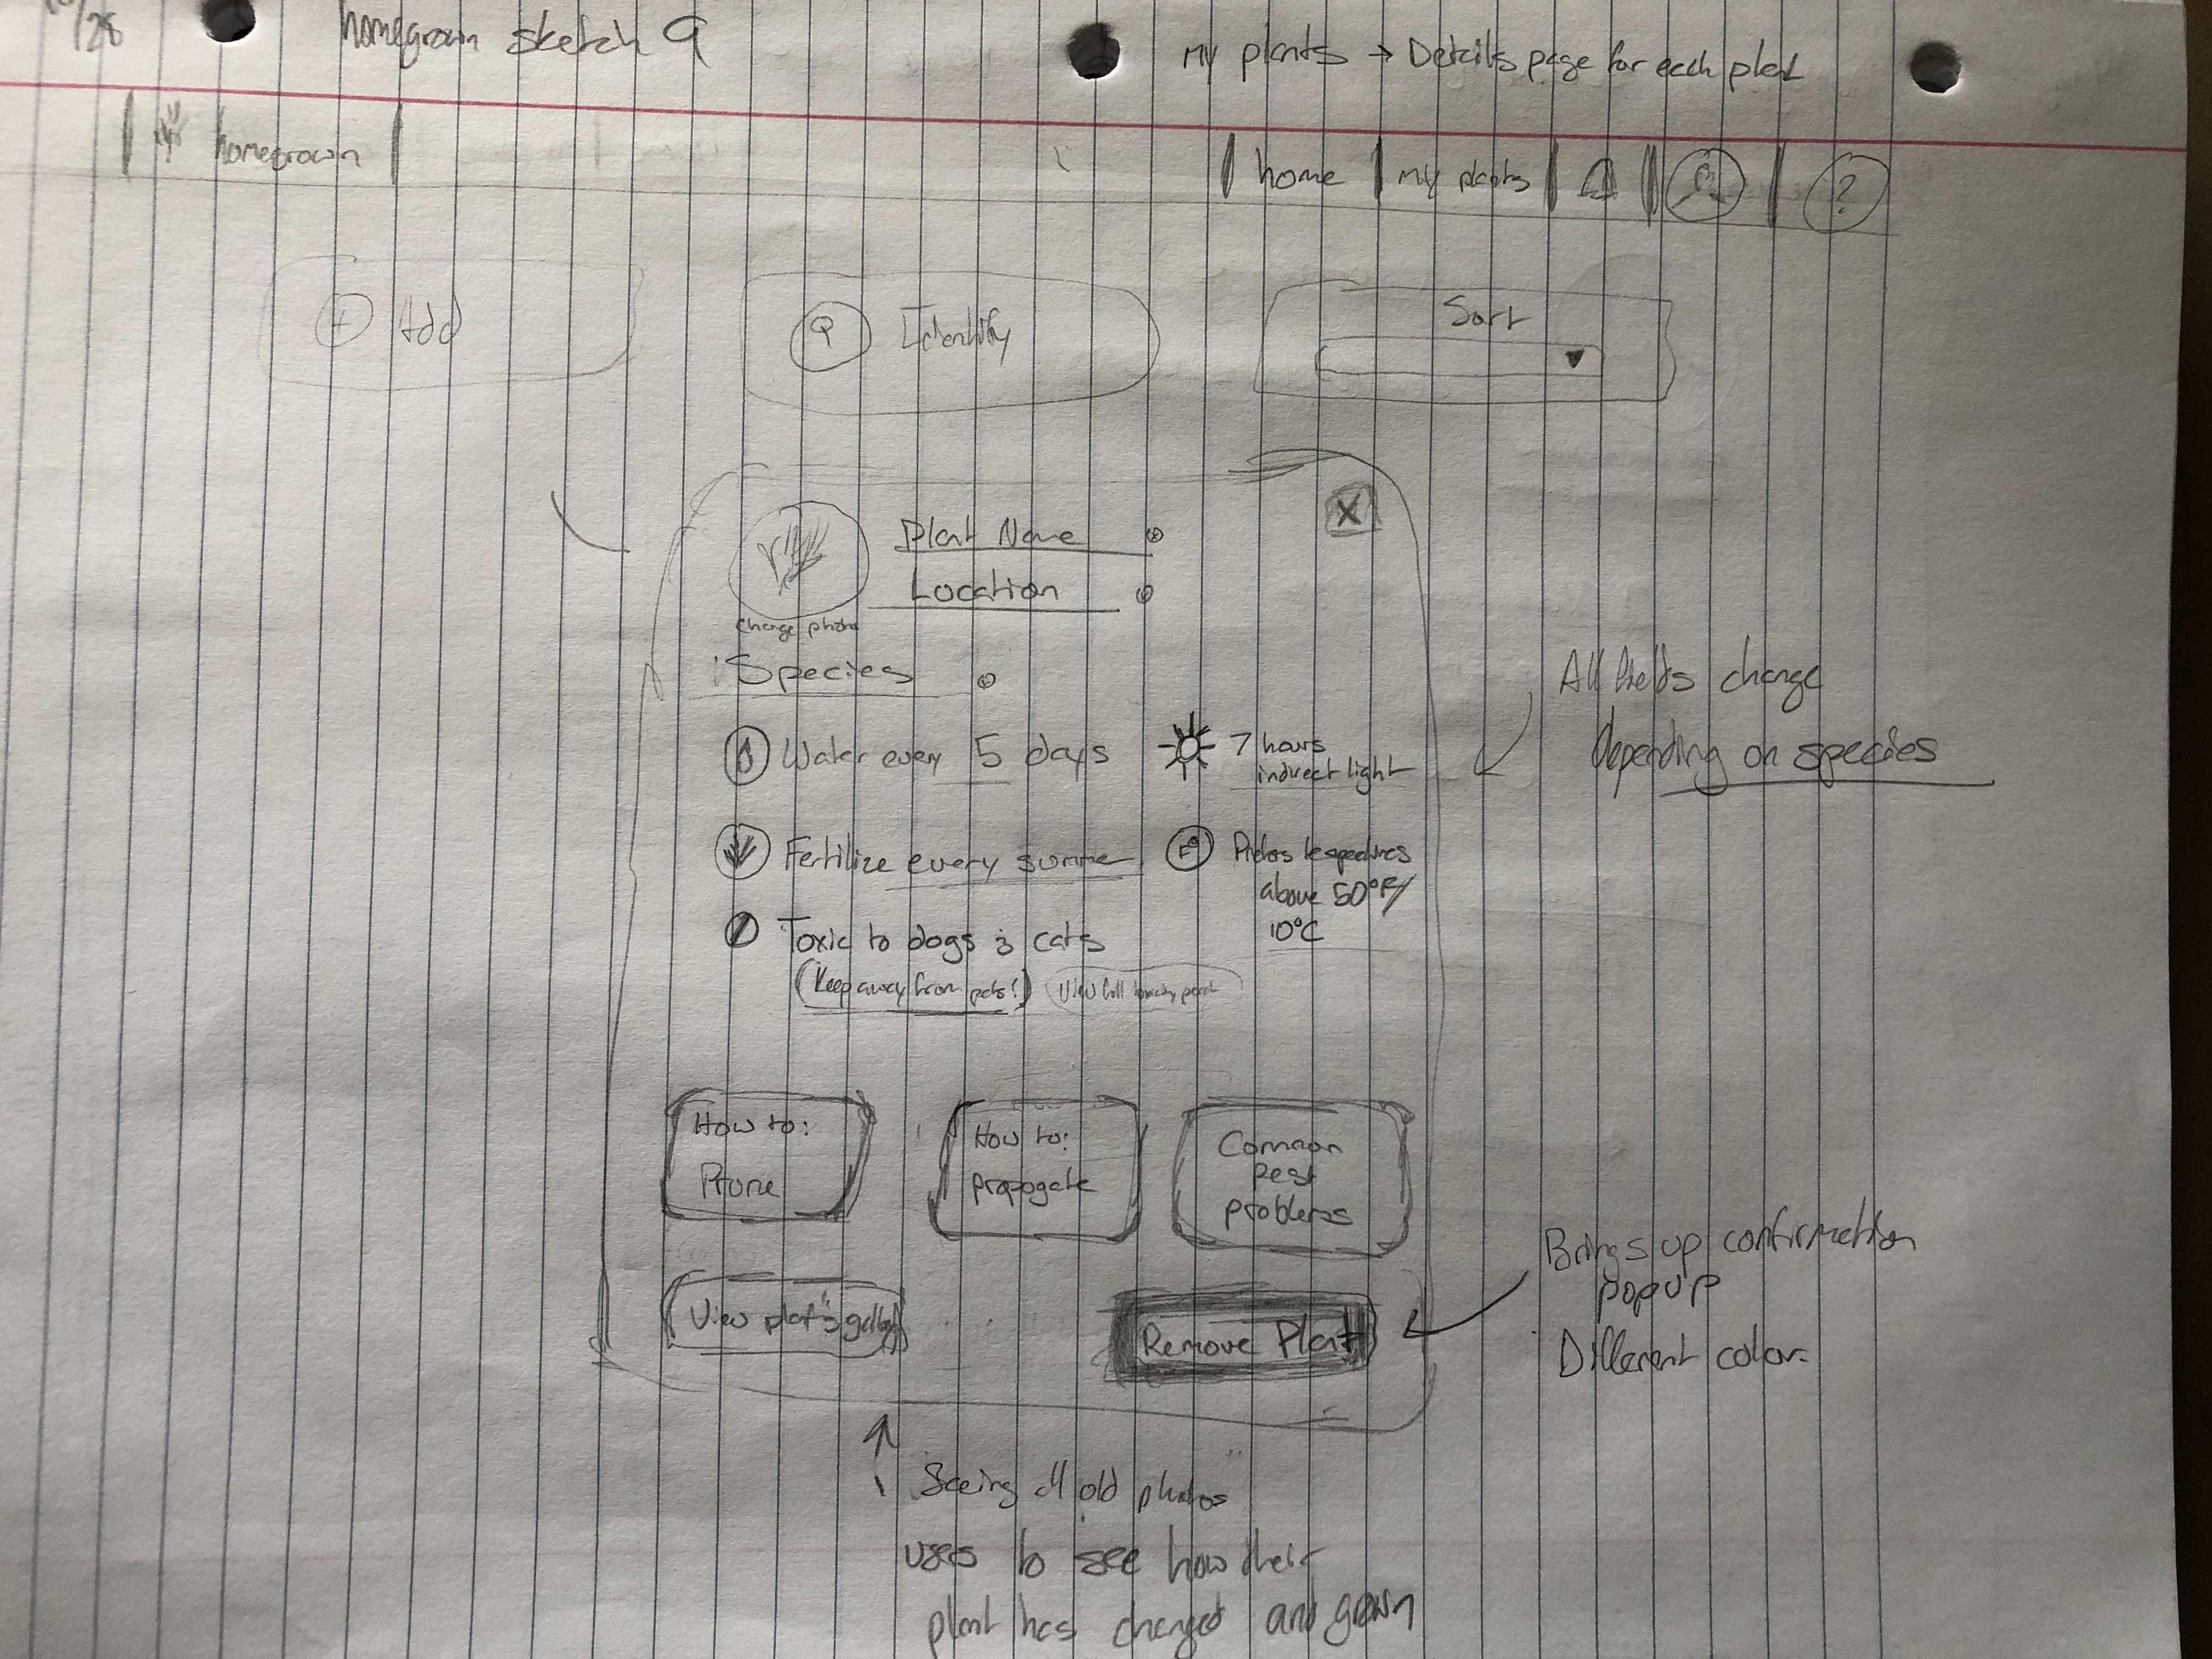 /28
homegrown sketch 9
My plants → Details page for each plant
homegrown
home
my plants
?
+ Add
Identify
Sort
X
Plant Name
Location
change photo
Species
Water every 5 days
7 hours
indirect light
All fields change
depending on species
Fertilize every summer
F°
above 50°F/
10°C
Toxic to dogs & cats
(Keep away from pets!)
View full toxicity
How to:
Prune
How to:
propogate
Common
Pest
problems
View plant's gallery
Remove Plant
Brings up confirmation
popup
Different color.
Seeing all old photos
users to see how their
plant has changed and grown